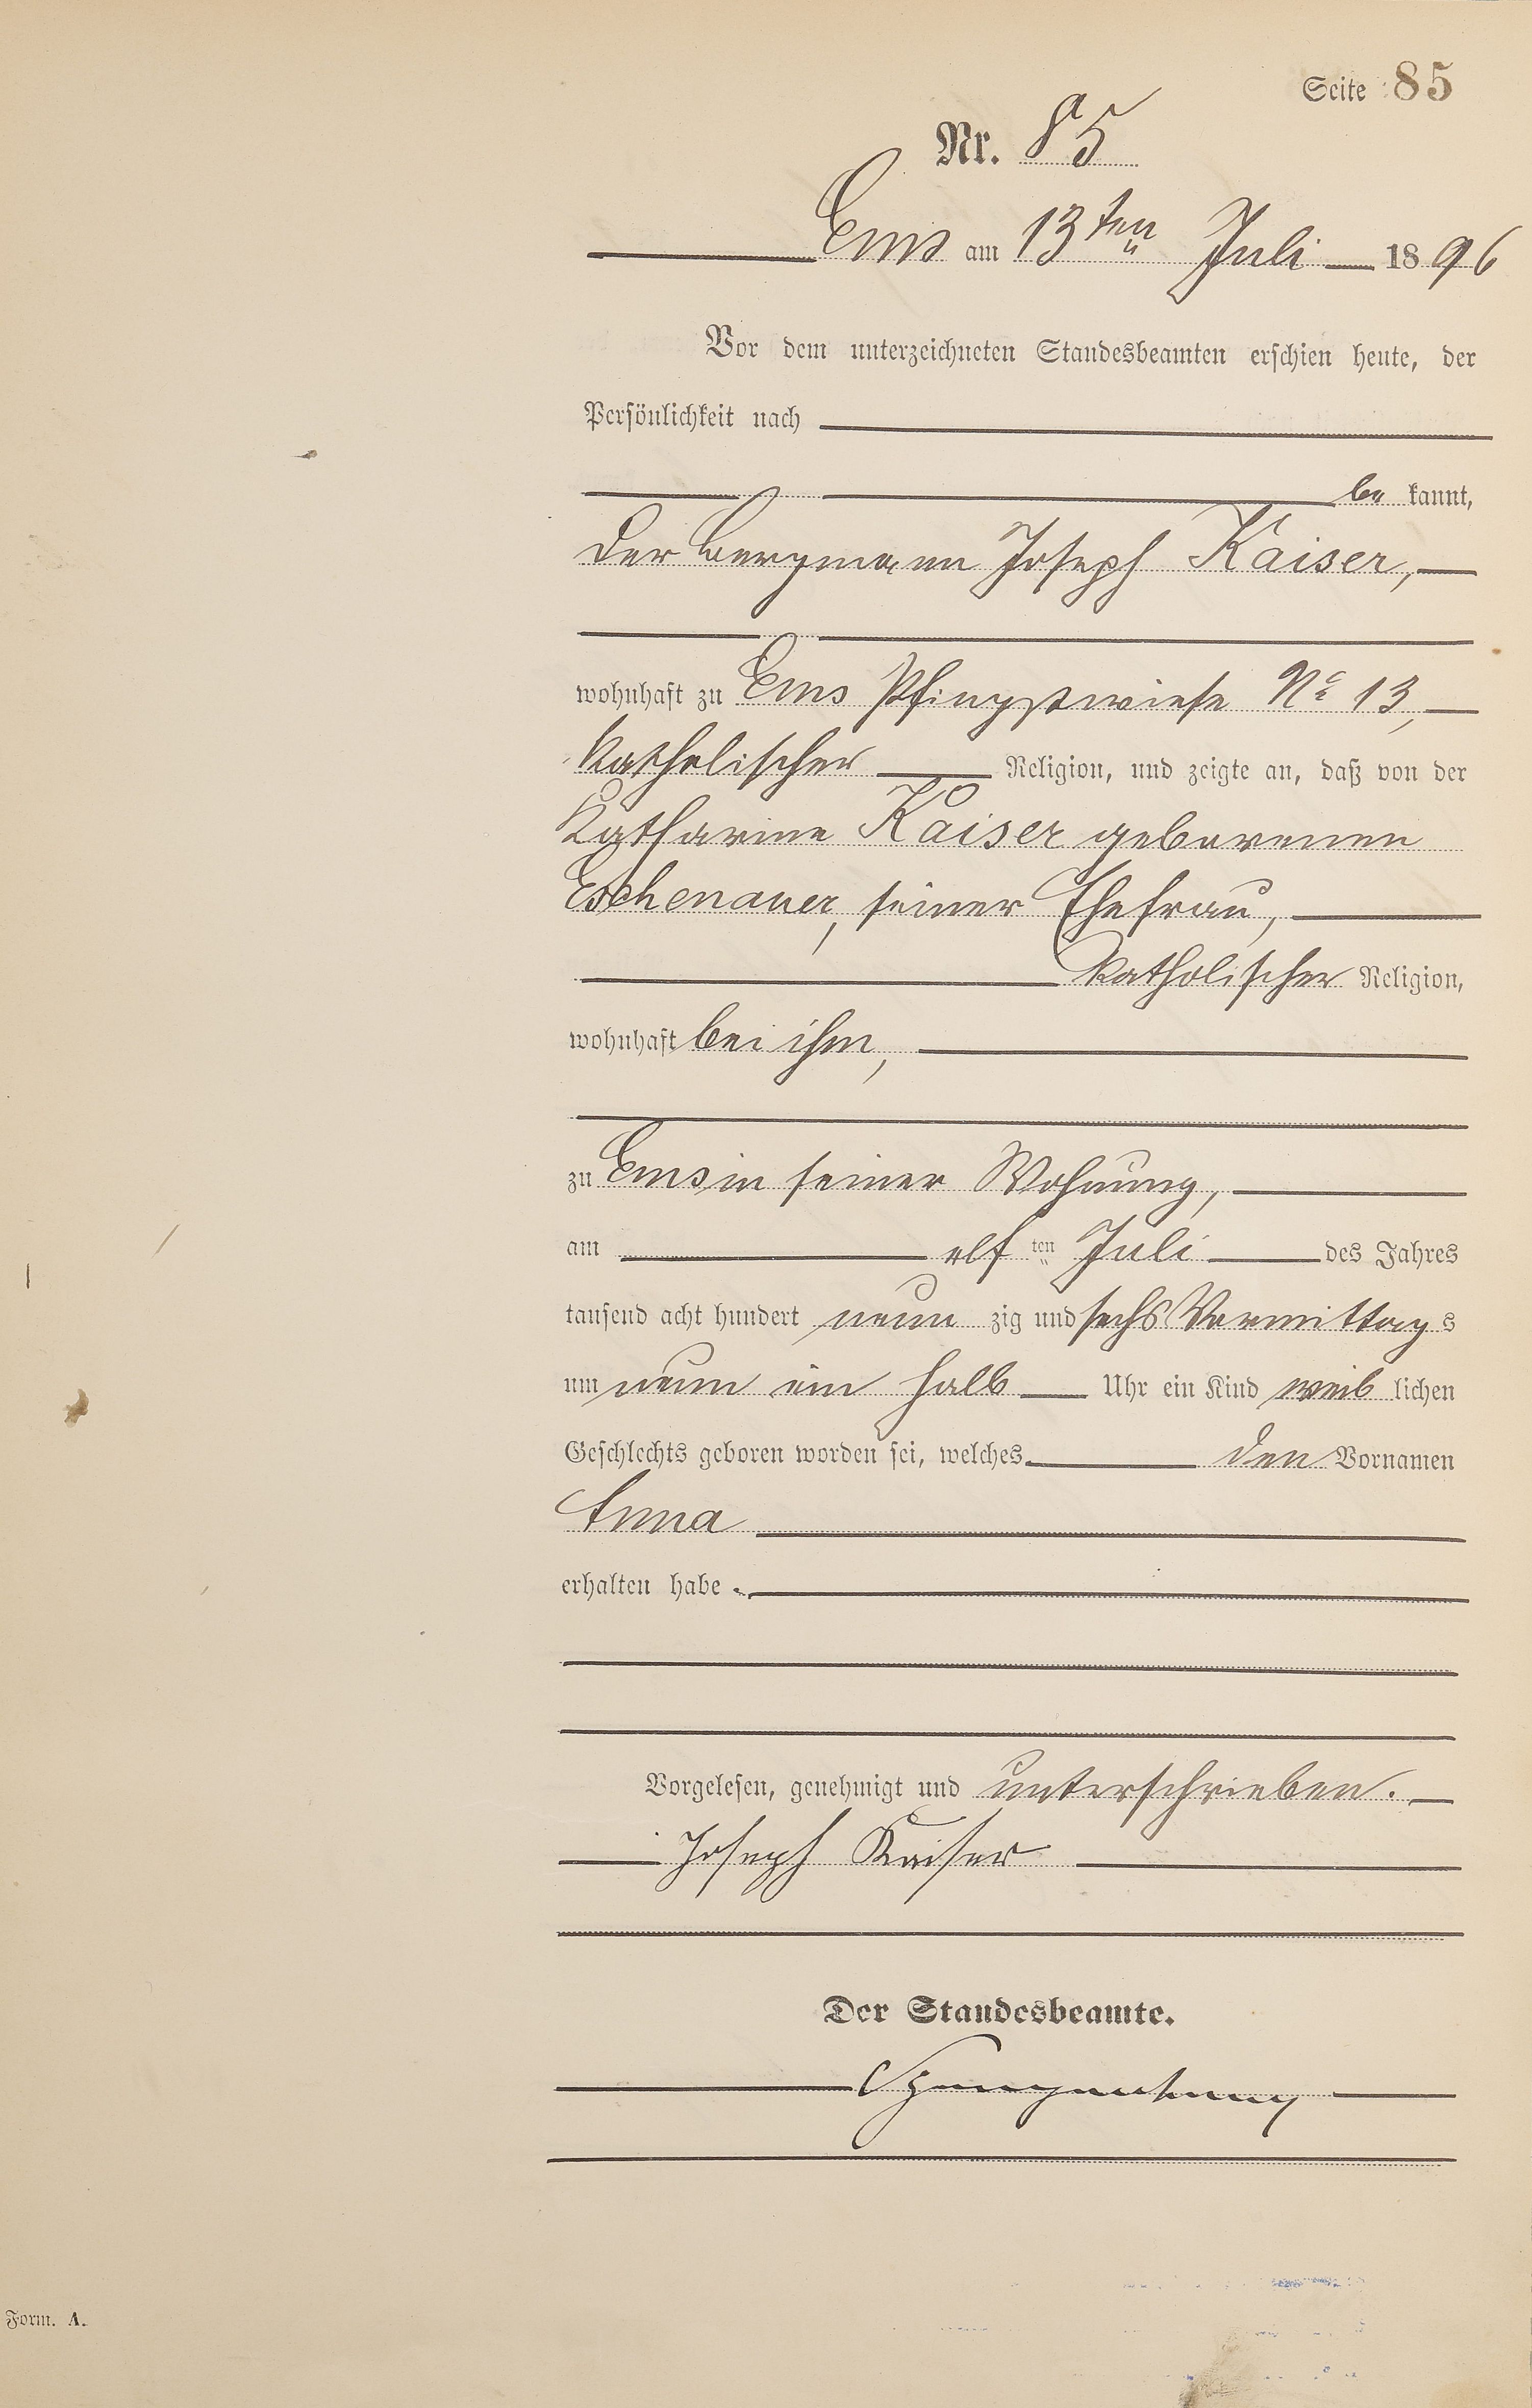 Seite 85
Nr. 85
Ems am 13ten Juli 1896
Vor dem unterzeichneten Standesbeamten erschien heute, der
Persönlichkeit nach
be kannt,
der Bergmann Joseph Kaiser,
wohnhaft zu Ems Pfingstwiese No 13,
katholischer Religion, und zeigte an, daß von der
Katharine Kaiser geborenen
Eschenauer, seiner Ehefrau,
katholischer Religion,
wohnhaft bei ihm,
zu Ems in seiner Wohnung,
am elf ten Juli des Jahres
tausend acht hundert neun zig und sechs Vormittag s
um neun ein halb Uhr ein Kind weib lichen
Geschlechts geboren worden sei, welches den Vornamen
Anna
erhalten habe.
Vorgelesen, genehmigt und unterschrieben.
Joseph Kaiser
Der Standesbeamte.
Form. A.